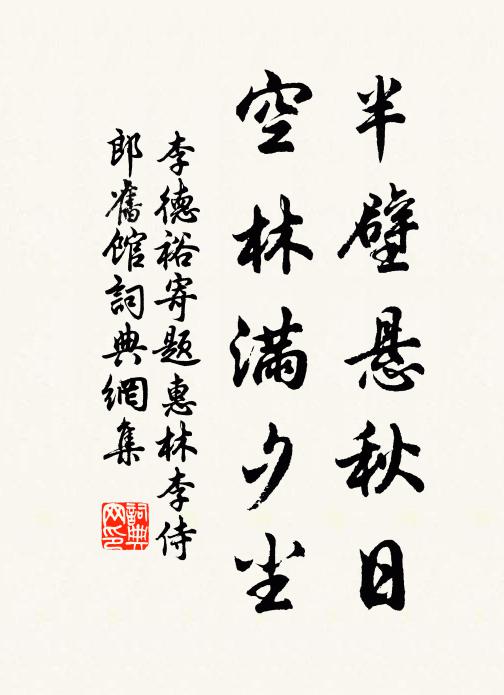 半壁悬秋日
空林满夕尘
李德裕寄题惠林李侍
郎舊館詞典網集
詞典
网印